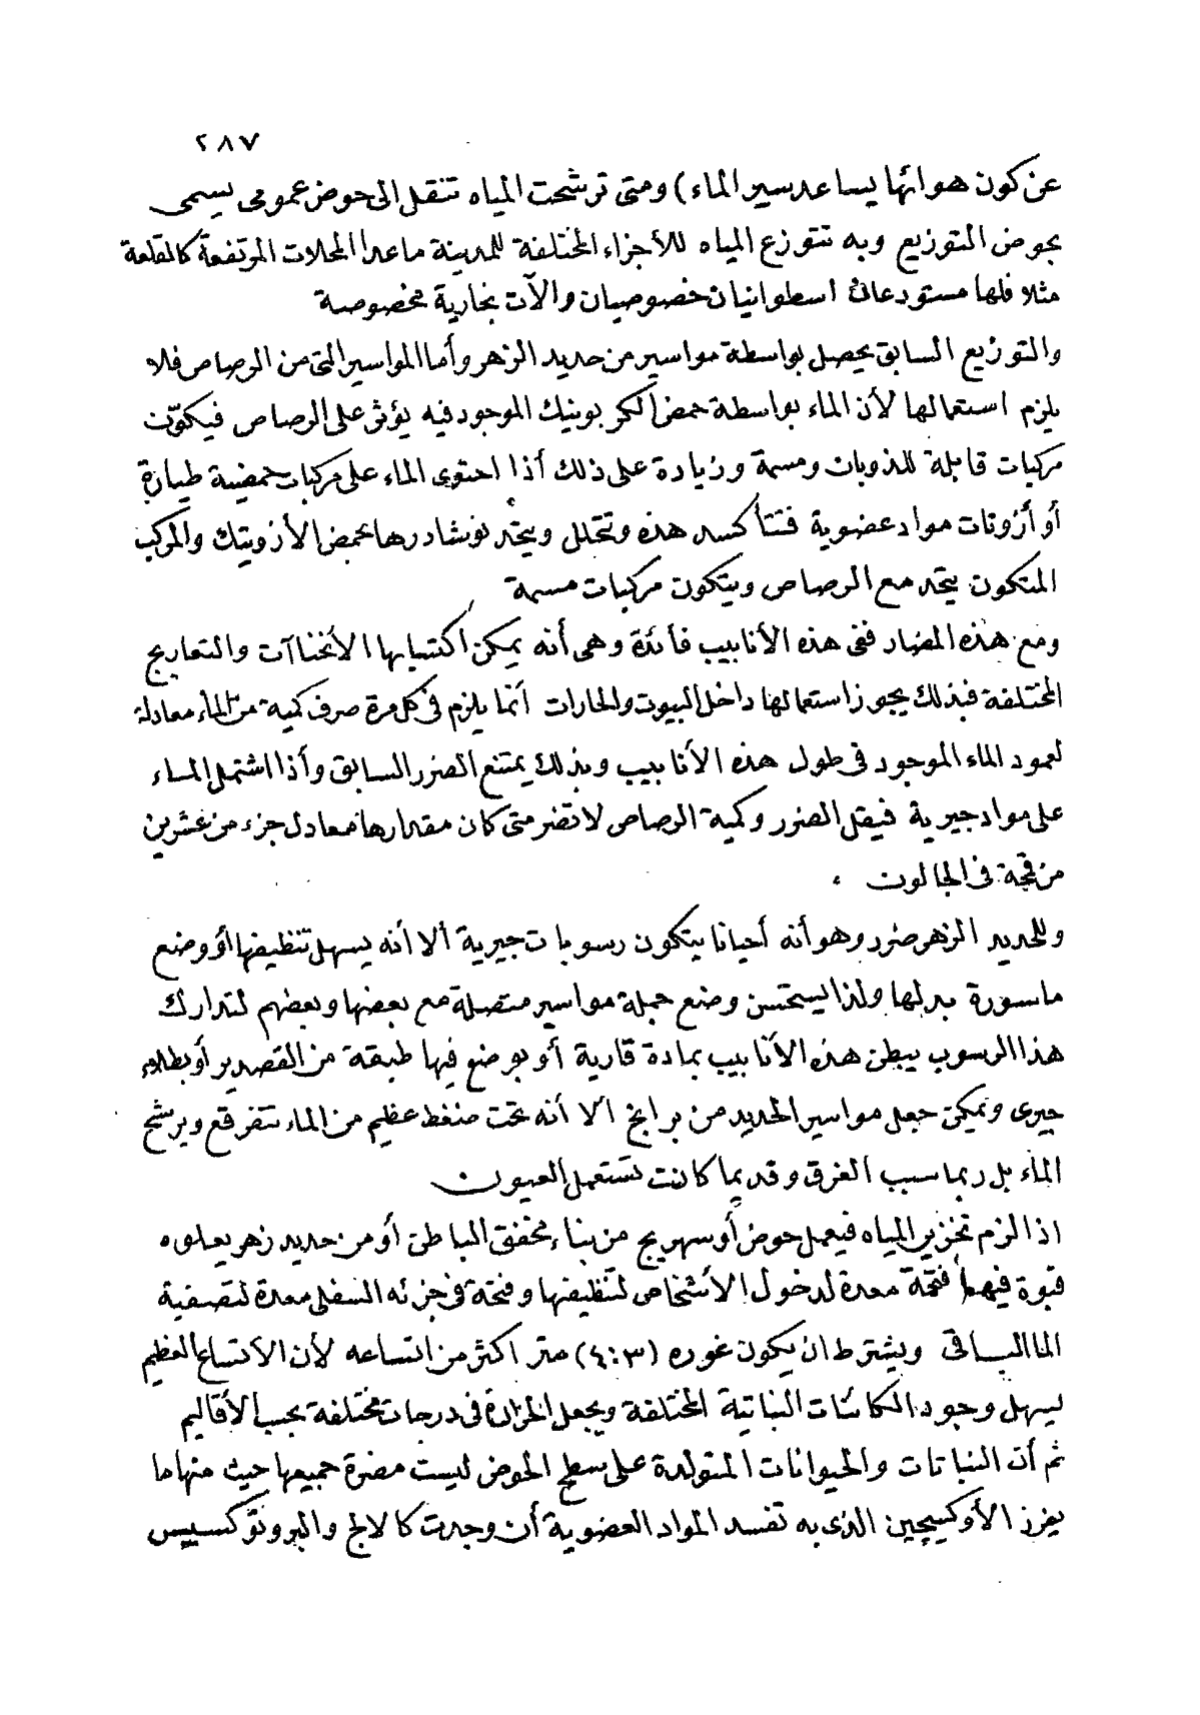 ٢٨٧
عن كون هوائها يساعد سير الماء) ومتى ترشحت المياه تنقل الى حوض عمومى يسمى
بحوض التوزيع وبه تتوزع المياه للأجزاء المختلفة للمدينة ماعدا المحلات المرتفعة كالقلعة
مثلا فلها مستودعان اسطوانيان خصوصيان والآت بخارية مخصوصة
والتوزيع السابق يحصل بواسطة مواسير من حديد الزهر وأما المواسير التى من الرصاص فلا
يلزم استعمالها لأن الماء بواسطة حمض الكربونيك الموجود فيه يؤثر على الرصاص فيكوّن
مركبات قابلة للذوبان ومسمة وزيادة على ذلك أذا احتوى الماء على مركبات حمضية طيارة
أو أزوتات مواد عضوية فتتأكسد هذه وتتحلل ويتحد نوشادرها بحمض الأزوتيك والمركب
المتكون يتحد مع الرصاص ويتكون مركبات مسمة
ومع هذه المضار ففى هذه الأنابيب فائدة وهى أنه يمكن اكتسابها الأنحناآت والتعاريج
المختلفة فبذلك يجوز استعمالها داخل البيوت والحارات أنما يلزم فى كل مرة صرف كمية من الماء معادلة
لعمود الماء الموجود فى طول هذه الأنابيب وبذلك يمتنع الضرر السابق وأذا اشتمل الماء
على مواد جيرية فيقل الضرر وكمية الرصاص لا تضر متى كان مقدارها معادل جزء من عشرين
من قمحة فى الجالون
وللحديد الزهر ضرر وهو أنه أحيانا يتكون رسوبات جيرية ألا أنه يسهل تنظيفها أو وضع
ماسورة بدلها ولذا يستحسن وضع جملة مواسير متصلة مع بعضها وبعضهم لتدارك
هذا الرسوب يبطن هذه الأنابيب بمادة قارية أو يوضع فيها طبقة من القصدير أو بطلاء
جيرى ويمكن جعل مواسير الحديد من برابخ ألا أنه تحت ضغط عظيم من الماء تتفرقع ويرشح
الماء بل ربما سبب الغرق وقديما كانت تستعمل العيون
اذا لزم تخزين المياه فيعمل حوض أو سهريج من بناء مخفق الباطن أو من حديد زهر يعلوه
قبوة فيها فتحة معدة لدخول الأشخاص لتنظيفها وفتحة فى جزئه السفلى معدة لتصفية
الما الباقى ويشترط ان يكون غوره (٣:٤) متر اكثر من اتساعه لأن الأتساع العظيم
يسهل وجود الكائنات النباتية المختلفة ويجعل الحرارة فى درجات مختلفة بحسب الأقاليم
ثم أن النباتات والحيوانات المتولدة على سطح الحوض ليست مضرة جميعها حيث منها ما
يفرز الأوكسيجين الذى به تفسد المواد العضوية أن وجدت كالالج والبروتوكسيس